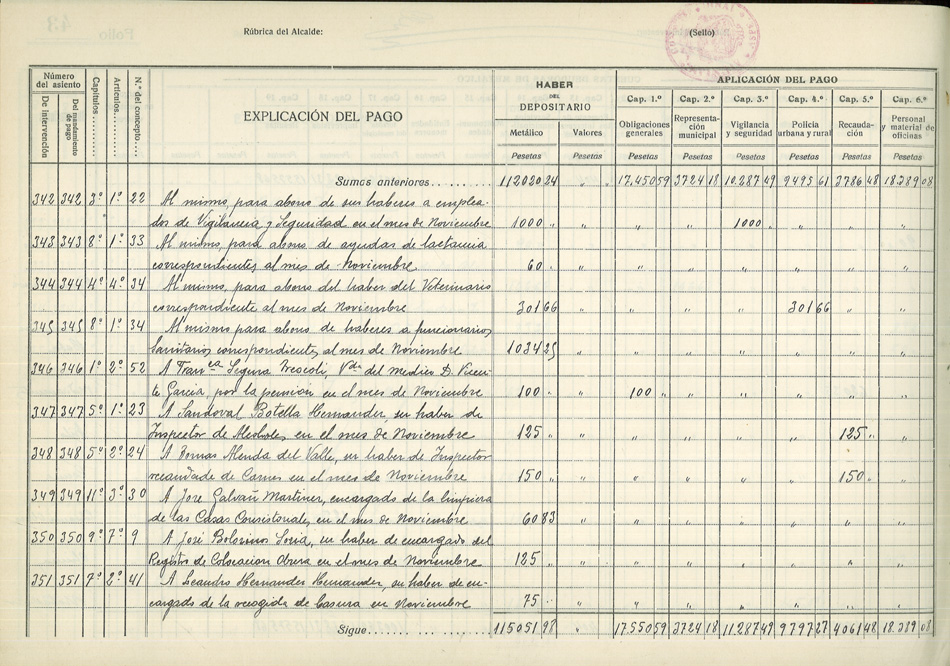 Rúbrica del Alcalde:
(Sello)
Número del asiento
De intervención
Del mandamiento de pago
Capítulos
Artículos
N.º del concepto
EXPLICACIÓN DEL PAGO
HABER DEL DEPOSITARIO
Metálico
Valores
APLICACIÓN DEL PAGO
Cap. 1.º Cap. 2.º Cap. 3.º Cap. 4.º Cap. 5.º Cap. 6.º
Obligaciones generales
Representación municipal
Vigilancia y seguridad
Policía urbana y rural
Recaudación
Personal y material de oficinas
Pesetas Pesetas Pesetas Pesetas Pesetas Pesetas Pesetas Pesetas
Sumas anteriores 112020 24 " " 17.450 59 3724 18 10.287 49 9495 61 3786 48 18.389 08
342 342 3º 1º 22 Al mismo, para abono de sus haberes a emplea-
dos de Vigilancia y Seguridad en el mes de Noviembre 1000 " " " " 1000 " " " "
343 343 8º 1º 33 Al mismo, para abono de ayudas de lactancia
correspondientes al mes de Noviembre 60 " " " " " " " "
344 344 4º 4º 34 Al mismo, para abono del haber del Veterinario
correspondiente al mes de Noviembre 301 66 " " " " 301 66 " "
345 345 8º 1º 34 Al mismo para abono de haberes a funcionarios
Sanitarios correspondientes al mes de Noviembre 1034 25 " " " " " " "
346 346 1º 2º 52 A Franca Segura Vda del medico D. Vicen-
te Garcia, por la pension en el mes de Noviembre 100 " " 100 " " " " " "
347 347 5º 1º 23 A Sandoval Botella Hernandez, su haber de
Inspector de Alcoholes, en el mes de Noviembre 125 " " " " " " 125 " "
348 348 5º 2º 24 A Tomas Alenda del Valle, su haber de Inspector
de Carnes en el mes de Noviembre 150 " " " " " " 150 " "
349 349 11º 3º 30 A Jose Galvañ Martinez, encargado de la limpieza
de las Casas Consistoriales, en el mes de Noviembre 60 83 " " " " " " "
350 350 9º 7º 9 A José Bolorinos Soria, su haber de encargado del
Registro de Colocacion Obrera en el mes de Noviembre 125 " " " " " " " "
351 351 7º 2º 41 A Leandro Hernandez Hernandez, su haber de en-
cargado de la recogida de basura en Noviembre 75 " " " " " " " "
Sigue 115051 98 " " 17550 59 3724 18 11287 49 9797 27 4061 48 18.389 08